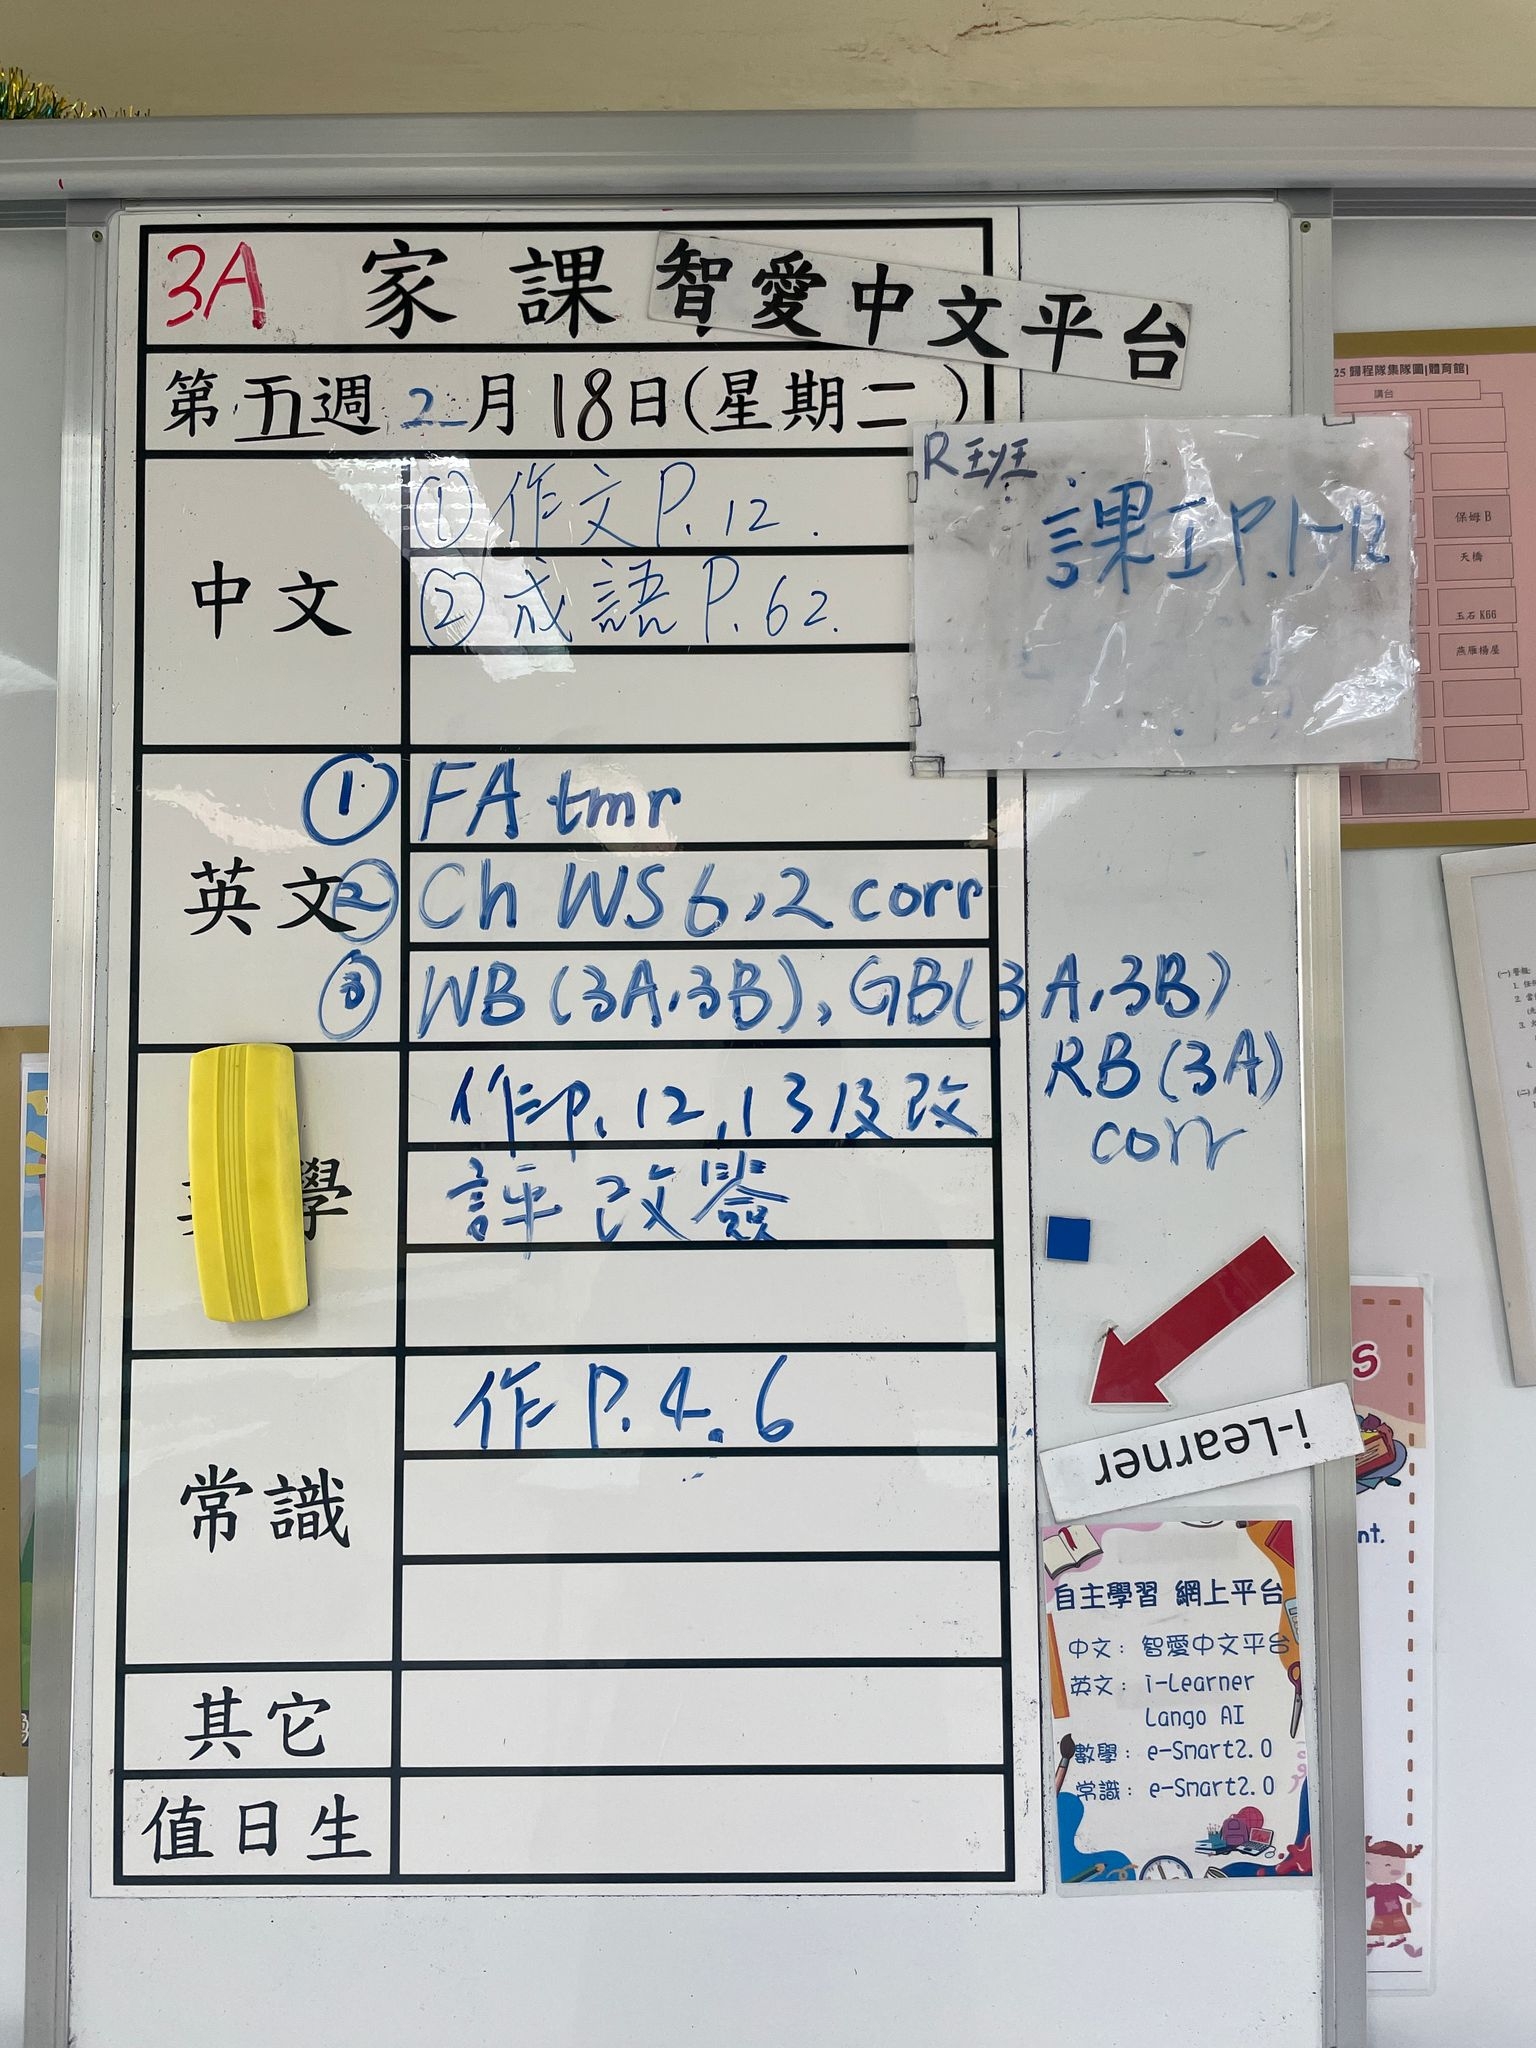 3A 家課 智愛中文平台
第五週 2月18日(星期二)
中文
① 作文 P. 12.
② 成語 P. 62.
R班
課工P.1-12
英文
① FA tmr
② Ch WS 6,2 corr
③ WB (3A,3B), GB(3A,3B)
RB (3A)
corr
學
作P. 12,13及改
評改簽
常識
作 P. 4, 6
其它
值日生
i-Learner
自主學習 網上平台
中文: 智愛中文平台
英文: i-Learner
Lango AI
數學: e-Smart2.0
常識: e-Smart2.0
25 歸程隊集隊圖[體育館]
講台
保姆 B
天橋
玉石 K66
燕雁楊屋
s
nt.